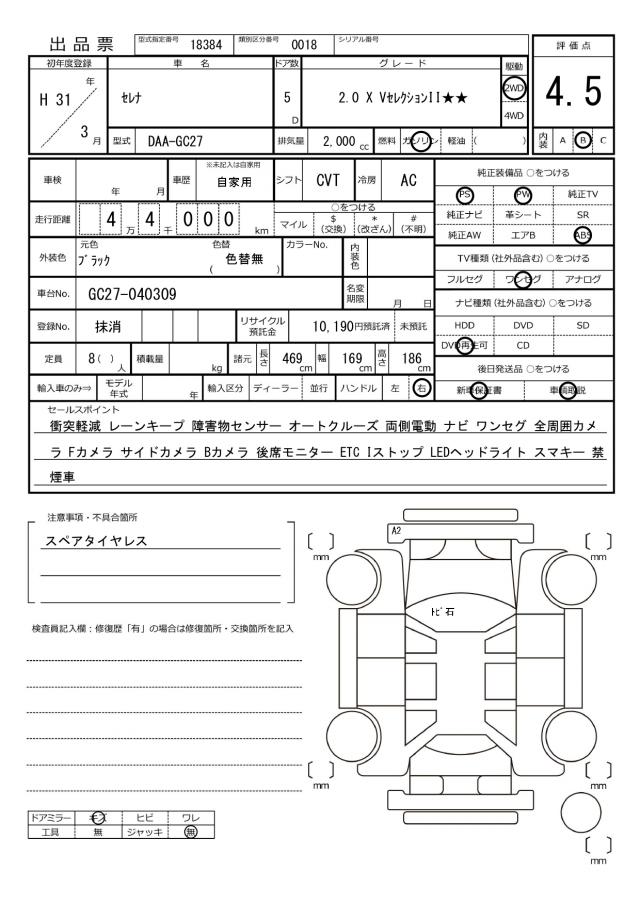 出品票
型式指定番号 18384 類別区分番号 0018 シリアル番号
評価点
4.5
内装 A B C
初年度登録 車名 ドア数 グレード 駆動
H 31 年 3 月
セレナ
5 D
2.0 X VセレクションII★★
2WD
4WD
型式 DAA-GC27 排気量 2,000 cc 燃料 ガソリン 軽油 ( )
車検 年 月 車歴 ※未記入は自家用 自家用 シフト CVT 冷房 AC
走行距離 4 万 4 千 0 0 0 km
○をつける
マイル $(交換) *(改ざん) #(不明)
外装色 元色 ブラック 色替 ( 色替無 ) カラーNo. 内装色
車台No. GC27-040309 名変期限 月 日
登録No. 抹消 リサイクル預託金 10,190円預託済 未預託
定員 8( )人 積載量 kg 諸元 長さ 469cm 幅 169cm 高さ 186cm
輸入車のみ⇒ モデル年式 年 輸入区分 ディーラー 並行 ハンドル 左 右
純正装備品 ○をつける
PS PW 純正TV
純正ナビ 革シート SR
純正AW エアB ABS
TV種類(社外品含む)○をつける
フルセグ ワンセグ アナログ
ナビ種類(社外品含む)○をつける
HDD DVD SD
DVD再生可 CD
後日発送品 ○をつける
新車保証書 車輌取説
セールスポイント
衝突軽減 レーンキープ 障害物センサー オートクルーズ 両側電動 ナビ ワンセグ 全周囲カメ
ラ Fカメラ サイドカメラ Bカメラ 後席モニター ETC Iストップ LEDヘッドライト スマキー 禁
煙車
注意事項・不具合箇所
スペアタイヤレス
検査員記入欄：修復歴「有」の場合は修復箇所・交換箇所を記入
A2
トビ石
[ ] mm
[ ] mm
[ ] mm
[ ] mm
[ ] mm
ドアミラー キズ ヒビ ワレ
工具 無 ジャッキ 無